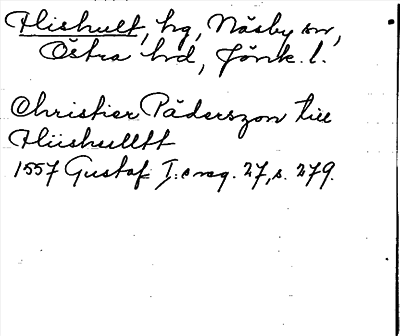 Hishult, hg, Näsby sn,
Östra hd, Jönk. l.
Christier Päderszon till
Hiishulltt
1557 Gustaf I:s reg. 27, s. 279.